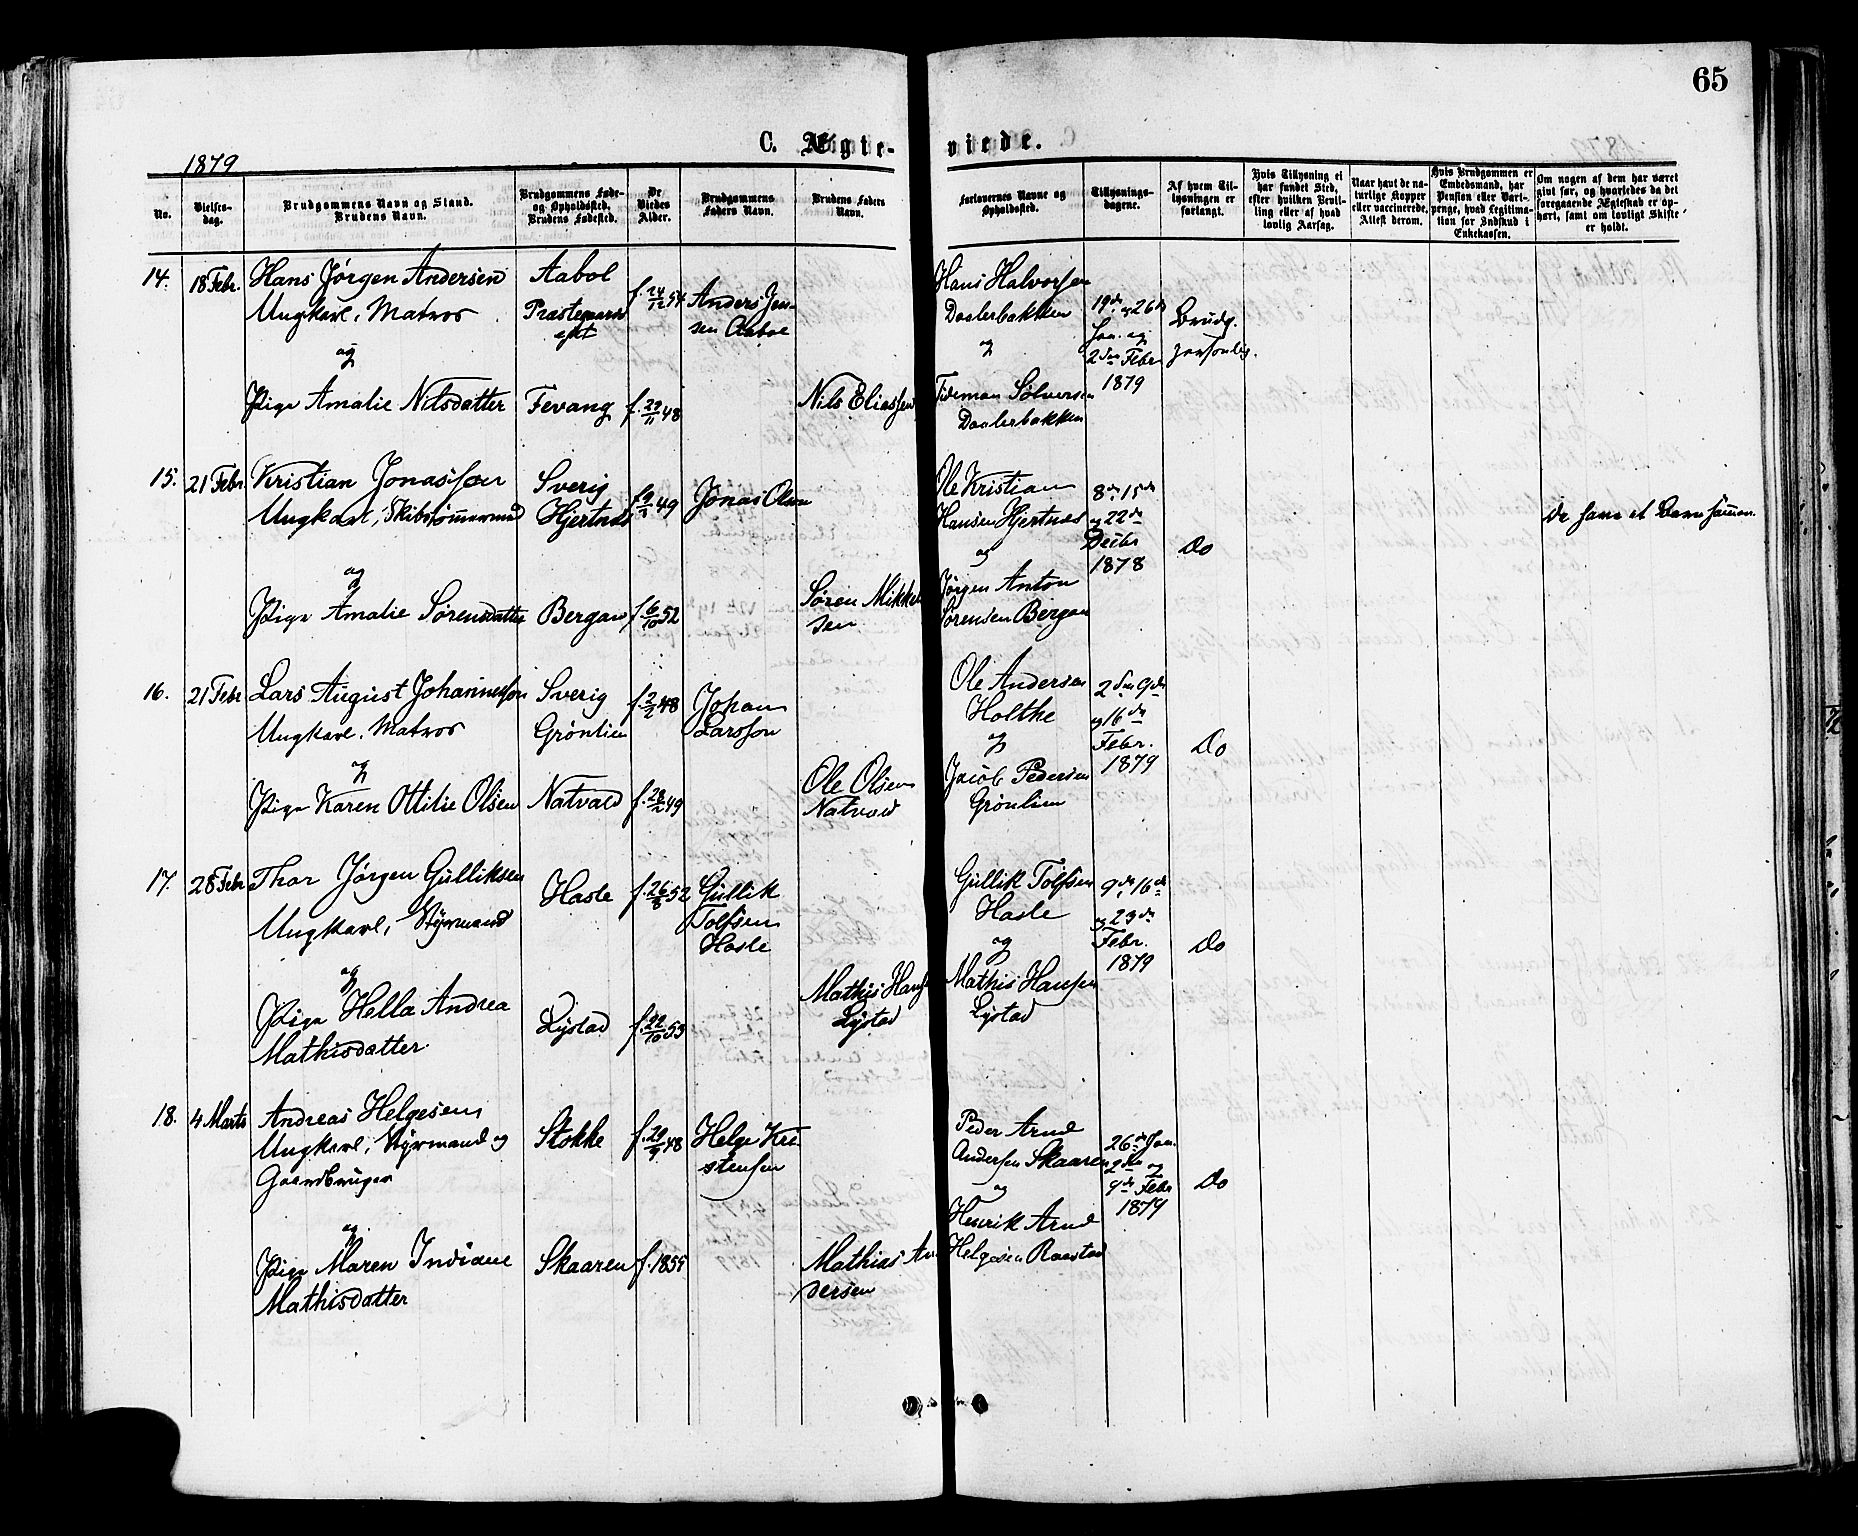 65
C. Ægte-viede.
1879
No.
Vielses-dag.
Brudgommens Navn og Stand.
Brudens Navn.
Brudgommens Føde-
og Opholdssted.
Brudens Fødested.
De
Viedes
Alder.
Brudgommens
Faders Navn.
Brudens Faders
Navn.
Forlovernes Navne og
Opholdssted.
Tillysnings-
dagene.
Af hvem Til-
lysningen er
forlangt.
Hvis Tillysning ei
har fundet Sted,
efter hvilken Bevil-
ling eller af hvad
lovlig Aarsag.
Naar havt de na-
turlige Kopper
eller vaccinerede,
Attest derom.
Hvis Brudgommen er
Embedsmand, har
Pension eller Vart-
penge, hvad Legitima-
tion for Indskud i
Enkekassen.
Om nogen af dem har været
gift før, og hvorledes da det
foregaaende Ægteskab er op-
hørt, samt om lovligt Skifte
er holdt.
14.
18 Febr.
Hans Jörgen Andersen
Ungkarl, Matros
og
Pige Amalie Nilsdatter
Aabol
Fevang
f. 24/12 54
f. 29/11 48
Anders Jen-
sen Aaboe
Nils Eliassen
Hans Halvorsen
Daalerbakken
og
Tideman Sölversen
Daalerbakken
19de og 26de
Jan. og
2den Febr
1879
Brudg.
personlig.
15.
21 Febr
Kristian Jonassen
Ungkarl, Skibstömmermand
og
Pige Amalie Sörensdatter
Sverig
Hjertnes
Bergan
49
f. 6/10 52
Jonas Olsen
Sören Mikkel
sen
Ole Kristian
Hansen Hjertnes
og
Jörgen Anton
Sörensen Bergan
8de 15de
og 22de
Decbr
1878
Do
De have et Barn sammen.
16.
21 Febr
Lars August Johannesson
Ungkarl, Matros
og
Pige Karen Ottilie Olsen
Sverig
Grönlien
Natvald
f. 2/2 48
f. 28/2 49
Johan
Larsson
Ole Olsen
Natvald
Ole Andersen
Holthe
og
Jacob Pedersen
Grönlien
2den 9de
og 16de
Febr.
1879
Do
17.
28 Febr
Thor Jörgen Gulliksen
Ungkarl, Styrmand
og
Pige Hella Andrea
Mathisdatter.
Hasle
Lystad
f. 26/8 52
f. 22/10 53
Gullik
Tolfsen
Hasle
Mathis Hansen
Lystad
Gullik Tolfsen
Hasle
og
Mathis Hansen
Lystad
9de 16de
og 23de
Febr.
1879
Do
18.
4 Marts
Andreas Helgesen
Ungkarl, Styrmand og
Gaardbruger
og
Pige Maren Indiane
Mathisdatter
Stokke
Skaaren
f. 20/9 48
f. 1855
Helge Kri
stensen
Mathias An
dersen
Peder Arnd
Andersen Skaaren
og
Henrik Arnd
Helgesen Raastad
26de Jan.
2den og
9de Febr
1879
Do